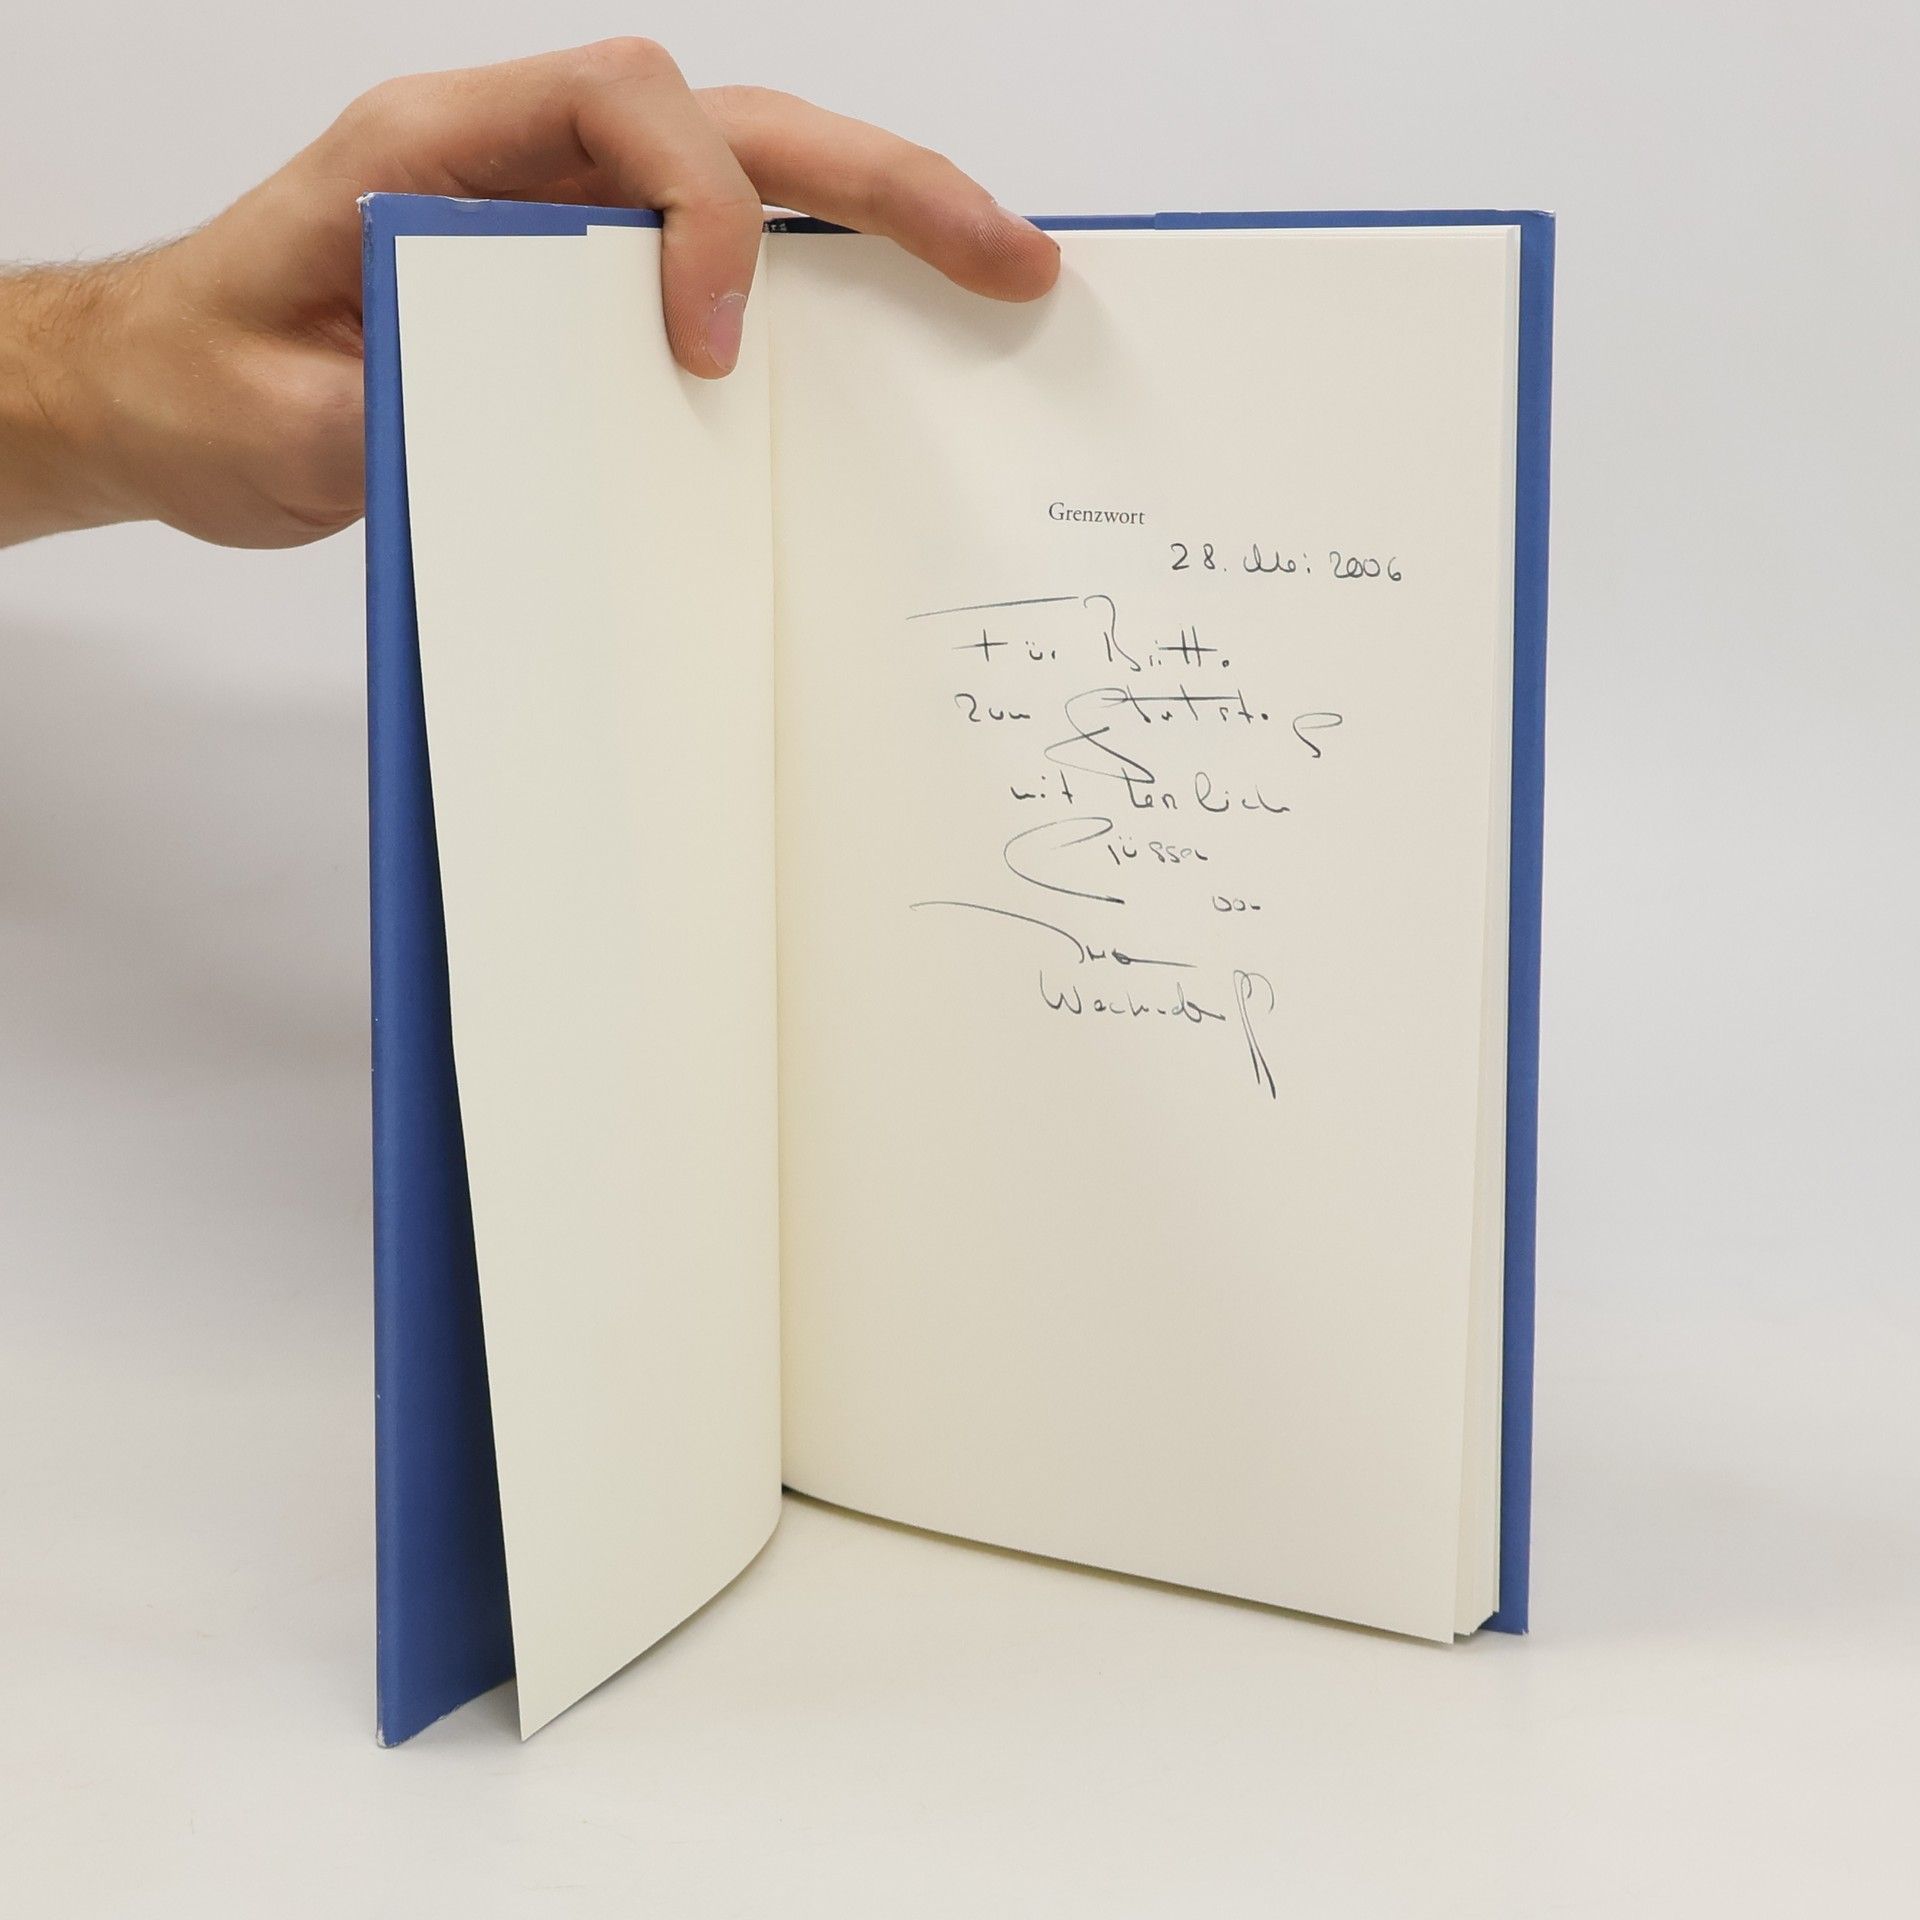 Grenzwort
28. Mai 2006
Für Britta
zum Geburtstag
mit herzlichen
Grüssen
von